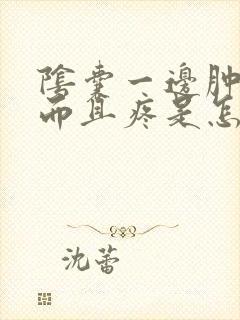 陰囊一邊肿
而且疼是怎
沈蕾